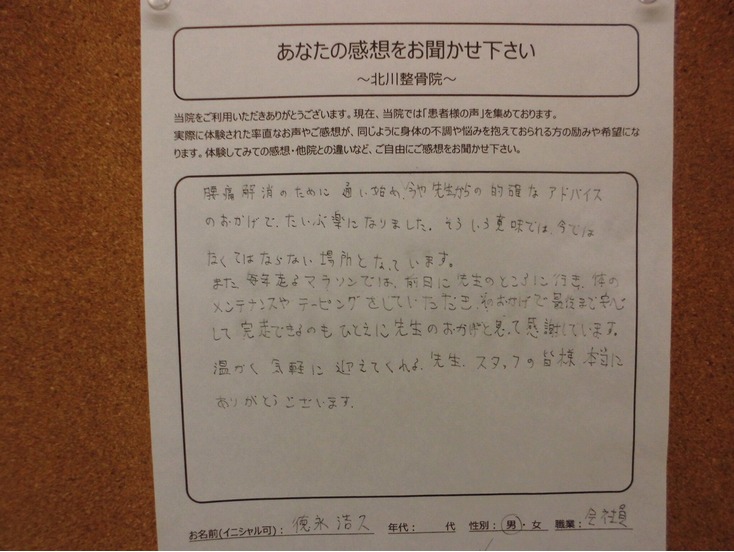 あなたの感想をお聞かせ下さい
～北川整骨院～
当院をご利用いただきありがとうございます。現在、当院では「患者様の声」を集めております。
実際に体験された率直なお声やご感想が、同じように身体の不調や悩みを抱えておられる方の励みや希望にな
ります。体験してみての感想・他院との違いなど、ご自由にご感想をお聞かせ下さい。
腰痛解消のために通い始め、今や先生からの的確なアドバイス
のおかげで、だいぶ楽になりました。そういう意味では、今では
なくてはならない場所となっています。
また毎年走るマラソンでは、前日に先生のところに行き、体の
メンテナンスやテーピングをしていただき、そのおかげで最後まで安心
して完走できるのもひとえに先生のおかげと思って感謝しています。
温かく気軽に迎えてくれる、先生、スタッフの皆様本当に
ありがとうございます。
お名前(イニシャル可)： 徳永浩久 年代： 代 性別：男・女 職業：会社員